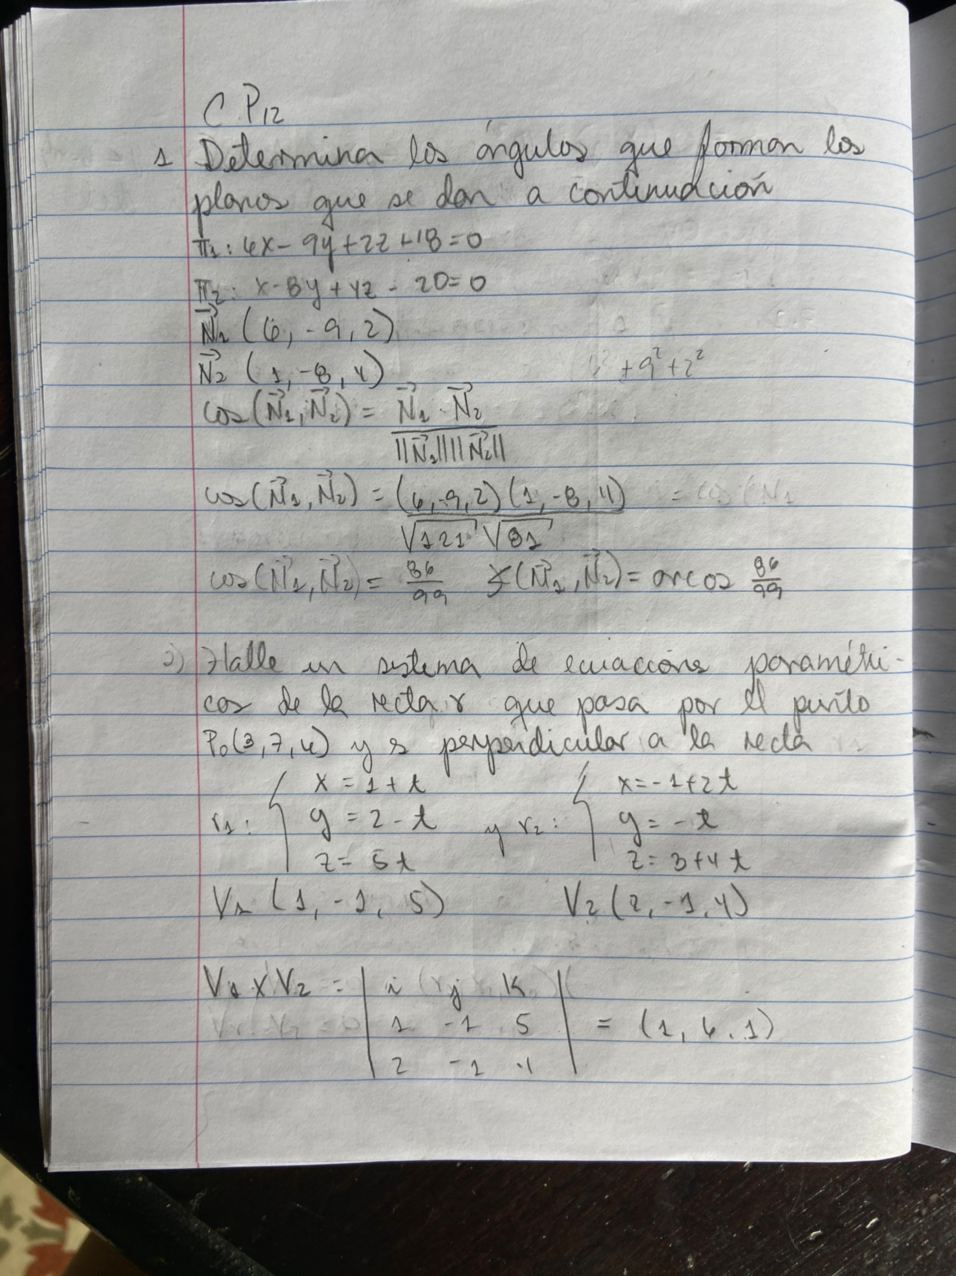 C P12
1 Determina los ángulos que forman los
planos que se dan a continuación
π1: 6x - 9y + 2z + 18 = 0
π2: x - 8y + 4z - 20 = 0
N⃗1 (6, -9, 2)
N⃗2 (1, -8, 4)
+9²+2²
cos(N⃗1, N⃗2) = N⃗1 · N⃗2 / ||N⃗1|| ||N⃗2||
cos(N⃗1, N⃗2) = (6, -9, 2)(1, -8, 4) / √121 √81
cos(N⃗1, N⃗2) = 86/99 ∡(N⃗1, N⃗2) = arcos 86/99
2) Halle un sistema de ecuaciones paramétri-
cas de la recta r que pasa por el punto
P0(3, 7, 4) y s perpendicular a la recta
r1: { x = 1 + t y r2: { x = -1 + 2t
y = 2 - t y = -t
z = 5t z = 3 + 4t
V1 (1, -1, 5) V2 (2, -1, 4)
V1 x V2 = | i j k |
| 1 -1 5 | = (1, 6, 1)
| 2 -1 4 |